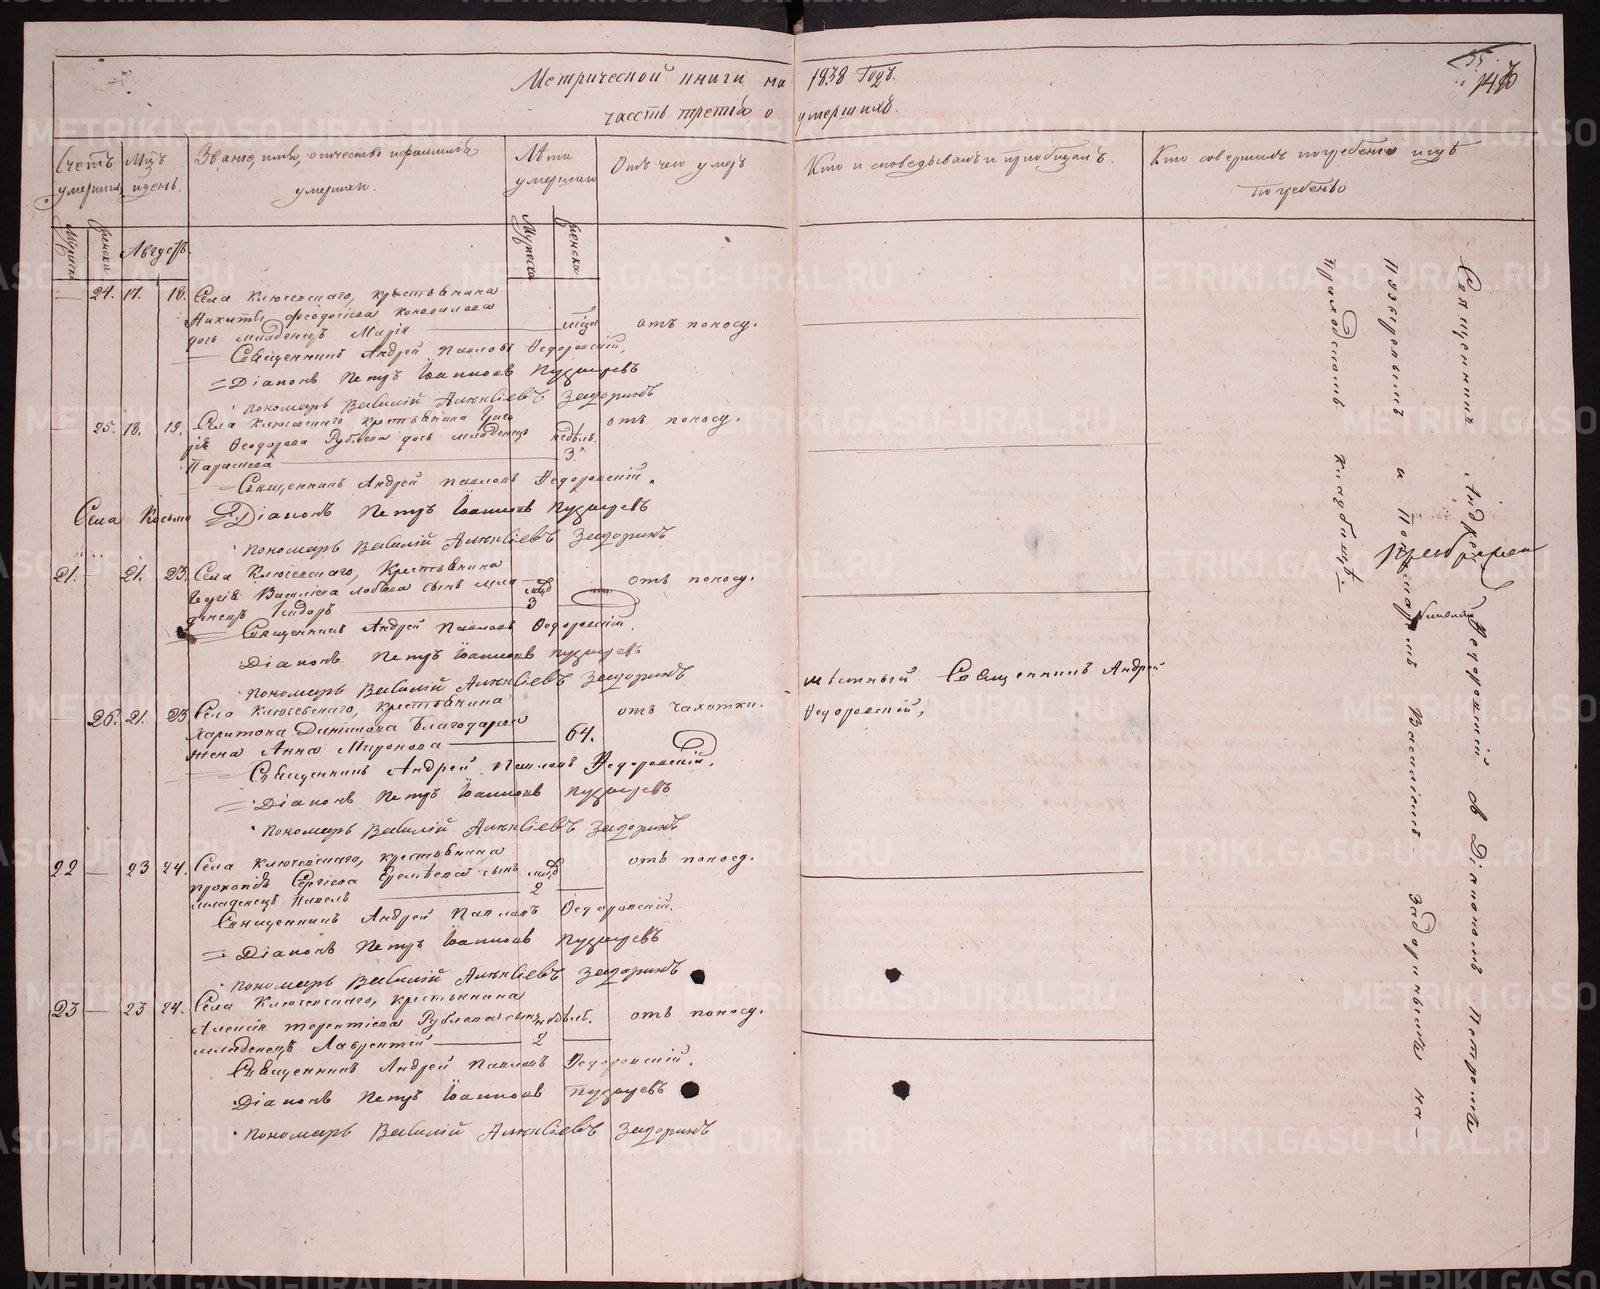 Метрической книги на 1838 Годъ.
часть третiя о умершихъ.
Счетъ умершихъ
Мцъ и день.
Званiе, имя, отчество и фамилiя умершихъ.
Лѣта умершихъ
Отъ чего умеръ
Кто исповѣдывалъ и прiобщалъ.
Кто совершалъ погребенiе и гдѣ погребены
Мужеска
Женска
Августъ.
Мужеска
Женска
24. 17. 18. Села Ключевскаго, крестьянина
Никиты Феодосiева Коновалова
дочь младенецъ Марiя
отъ поносу.
Священникъ Андрей Павловъ Федоровскiй,
Дiаконъ Петръ Iоанновъ Пузыревъ
Пономарь Василiй Алексiевъ Задоринъ
25. 18. 19. Села Ключевскаго крестьянина Григо
рiя Феодорова Рублева дочь младенецъ недѣль.
Параскева 3.
отъ поносу.
Священникъ Андрей Павловъ Федоровскiй.
Села Косьма
Дiаконъ Петръ Iоанновъ Пузыревъ
Пономарь Василiй Алексiевъ Задоринъ
21. — 21. 23. Села Ключевскаго, Крестьянина
Георгiя Василiева Лобова сынъ мла
денецъ Исидоръ 3
отъ поносу.
Священникъ Андрей Павловъ Федоровскiй.
Дiаконъ Петръ Iоанновъ Пузыревъ
Пономарь Василiй Алексiевъ Задоринъ
26. 21. 23 Села Ключевскаго, крестьянина
Харитона Данилова Благодарева
жена Анна Миронова 64.
отъ чахотки.
мѣстный Священникъ Андрей
Федоровскiй,
Священникъ Андрей Павловъ Федоровскiй.
Дiаконъ Петръ Iоанновъ Пузыревъ
Пономарь Василiй Алексiевъ Задоринъ
22 — 23 24. Села Ключевскаго, крестьянина
Прокопiя Сергiева Еремѣева сынъ
младенецъ Павелъ 2
отъ поносу.
Священникъ Андрей Павловъ Федоровскiй.
Дiаконъ Петръ Iоанновъ Пузыревъ
Пономарь Василiй Алексiевъ Задоринъ
23 — 23 24. Села Ключевскаго, крестьянина
Алексiя Терентiева Рублева сынъ недѣль.
младенецъ Лаврентiй 2
отъ поносу.
Священникъ Андрей Павловъ Федоровскiй.
Дiаконъ Петръ Iоанновъ Пузыревъ
Пономарь Василiй Алексiевъ Задоринъ
Священникъ Андрей Федоровскiй съ Дiакономъ Петромъ
Пузыревымъ и Пономаремъ Василiемъ Задоринымъ на
приходскомъ кладбищѣ.
METRIKI.GASO-URAL.RU